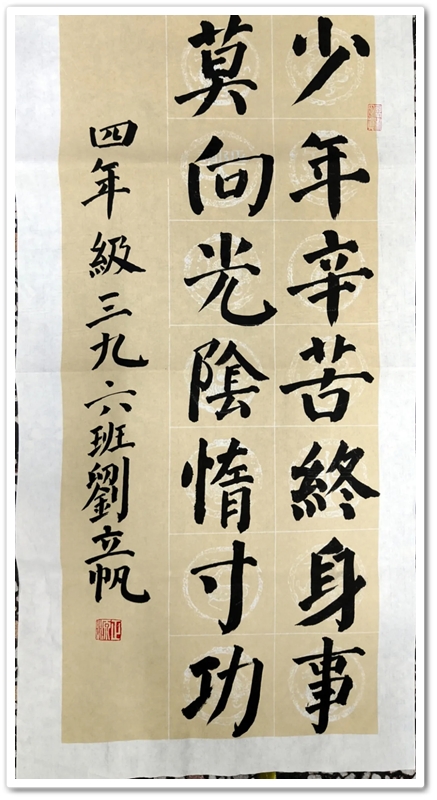 少年辛苦終身事
莫向光陰惰寸功
四年級三九六班劉立帆